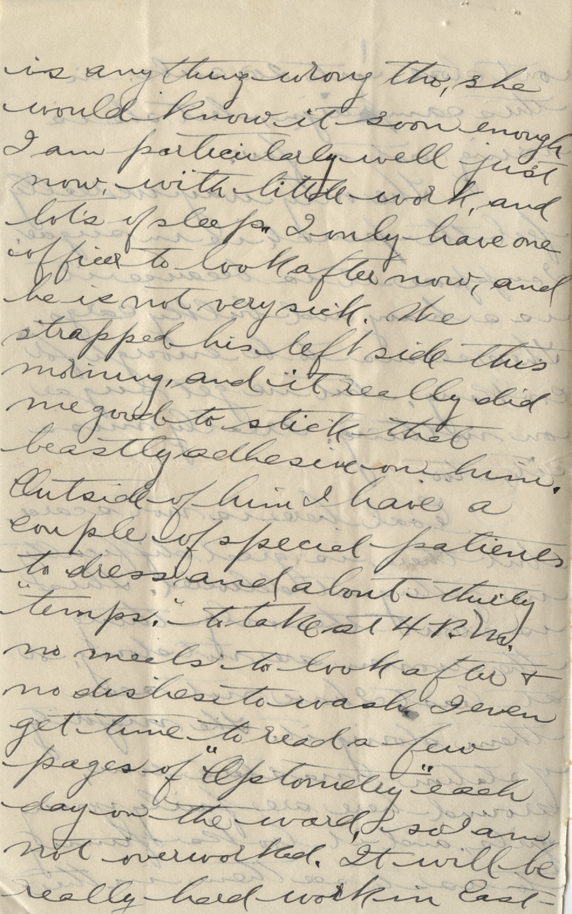 is any thing wrong tho, she
would know it soon enough
I am particularly well just
now, with little work, and
lots of sleep. I only have one
officer to look after now, and
he is not very sick. We
strapped his left side this
morning, and it really did
me good to stick that
beastly adhesive on him.
Outside of him I have a
couple of special patients
to dress, and about thirty
"temps." to take at 4 P.M.
no meals to look after +
no dishes to wash. I even
get time to read a few
pages of "Optometry" each
day on the ward, so I am
not overworked. It will be
really hard work in East-